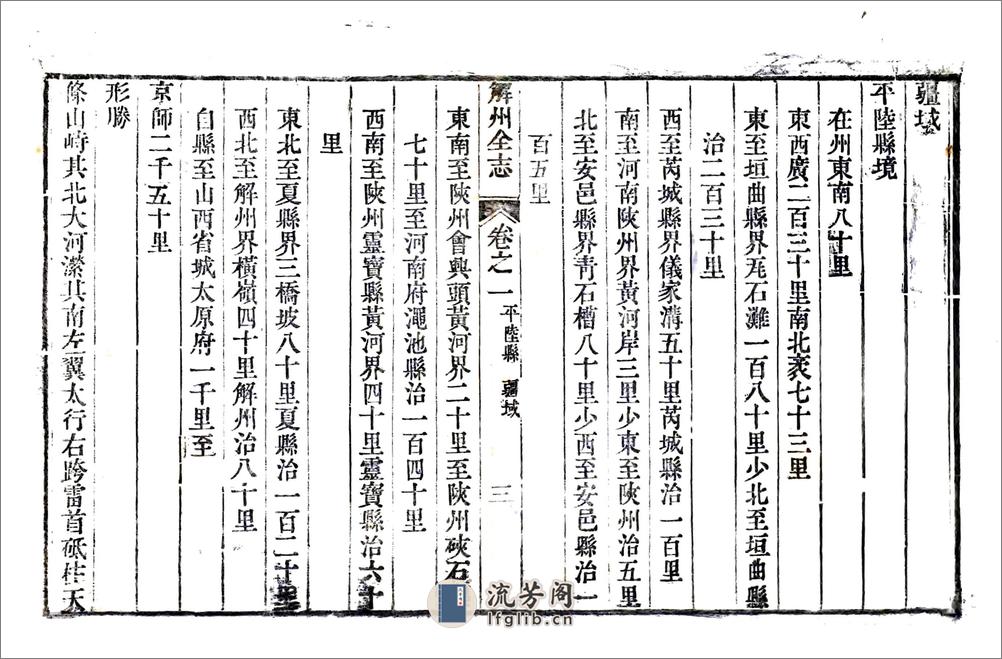 疆域
平陸縣境
在州東南八十里
東西廣二百三十里南北袤七十三里
東至垣曲縣界尨石灘一百八十里少北至垣曲縣
治二百三十里
西至芮城縣界儀家溝五十里芮城縣治一百里
南至河南陝州界黃河岸三里少東至陝州治五里
北至安邑縣界靑石槽八十里少西至安邑縣治一
百五里
解州全志 卷之一 平陸縣 疆域 三
東南至陝州會興頭黃河界二十里至陝州硤石
七十里至河南府澠池縣治一百四十里
西南至陝州靈寶縣黃河界四十里靈寶縣治六十
里
東北至夏縣界三橋坡八十里夏縣治一百二十里
西北至解州界橫嶺四十里解州治八十里
自縣至山西省城太原府一千里至
京師二千五十里
形勝
條山峙其北大河瀠其南左翼太行右跨雷首砥柱天
流芳阁
lfglib.cn